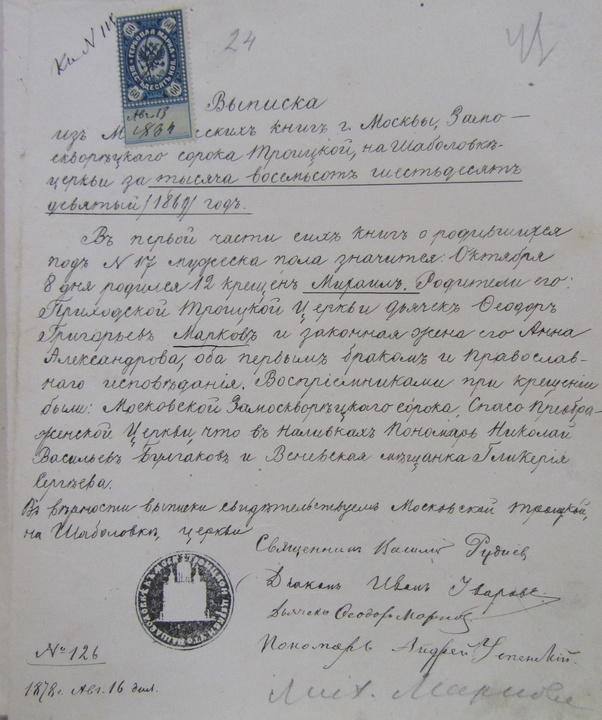 Кн N 118
24
60
60
ГЕРБОВАЯ МАРКА
ШЕСТЬДЕСЯТЪ КОП.
60
60
Авг 18
Выписка
изъ М скихъ книгъ г. Москвы, Замо-
скворѣцкаго сорока Троицкой, на Шаболовкѣ
церкви за тысяча восемьсотъ шестьдесятъ
девятый /1869/ годъ.
Въ первой части сихъ книгъ о родившихся
подъ N 17 мужеска пола значится: Октября
8 дня родился 12 крещенъ Михаилъ. Родители его:
Приходской Троицкой Церкви дьячекъ Ѳеодоръ
Григорьевъ Марковъ и законная жена его Анна
Александрова, оба первымъ бракомъ и православ-
наго исповѣданія. Воспріемниками при крещеніи
были: Московской Замоскворѣцкаго сорока, Спасо Преобра-
женской Церкви, что въ Наливкахъ Пономарь Николай
Васильевъ Булгаковъ и Веневская мѣщанка Гликерія
Сергѣева.
Въ вѣрности выписки свидѣтельствуемъ Московской Троицкой,
на Шаболовкѣ, церкви
Священникъ Василій Рудневъ
Діаконъ Иванъ Уваровъ
Дьячекъ Ѳеодоръ Марковъ
Пономарь Андрей Успенскій.
№ 126
1878 г. Авг. 16 дня.
Мих. Марковъ